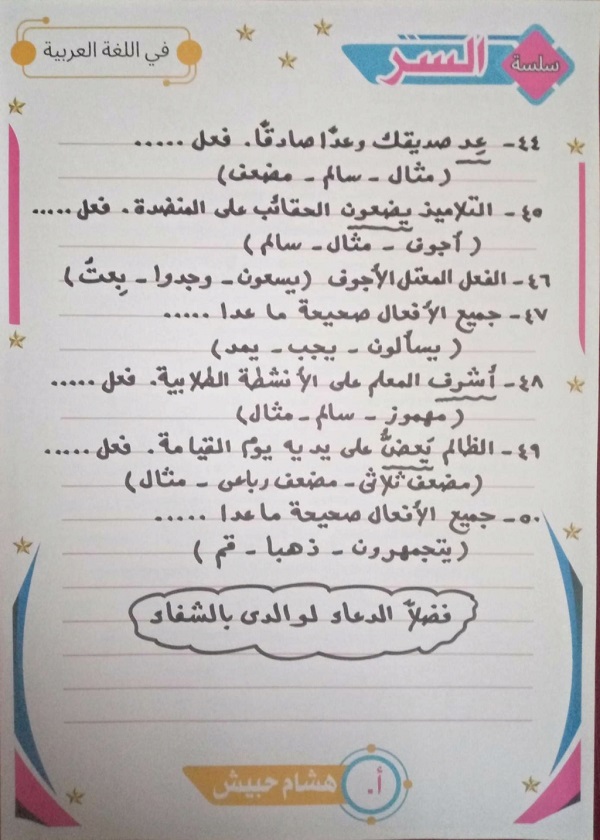 سلسة السر
في اللغة العربية
٤٤- عِد صديقك وعدًا صادقًا. فعل .....
(مثال - سالم - مضعف)
٤٥- التلاميذ يضعون الحقائب على المنضدة. فعل .....
(أجوف - مثال - سالم)
٤٦- الفعل المعتل الأجوف (يسعون - وجدوا - بِعتُ)
٤٧- جميع الأفعال صحيحة ما عدا .....
(يسألون - يجب - يمد)
٤٨- أشرف المعلم على الأنشطة الطلابية. فعل .....
(مهموز - سالم - مثال)
٤٩- الظالم يَعضُّ على يديه يوم القيامة. فعل .....
(مضعف ثلاثى - مضعف رباعى - مثال)
٥٠- جميع الأفعال صحيحة ما عدا .....
(يتجمهرون - ذهبا - قم)
فضلاً الدعاء لوالدى بالشفاء
أ. هشام حبيش